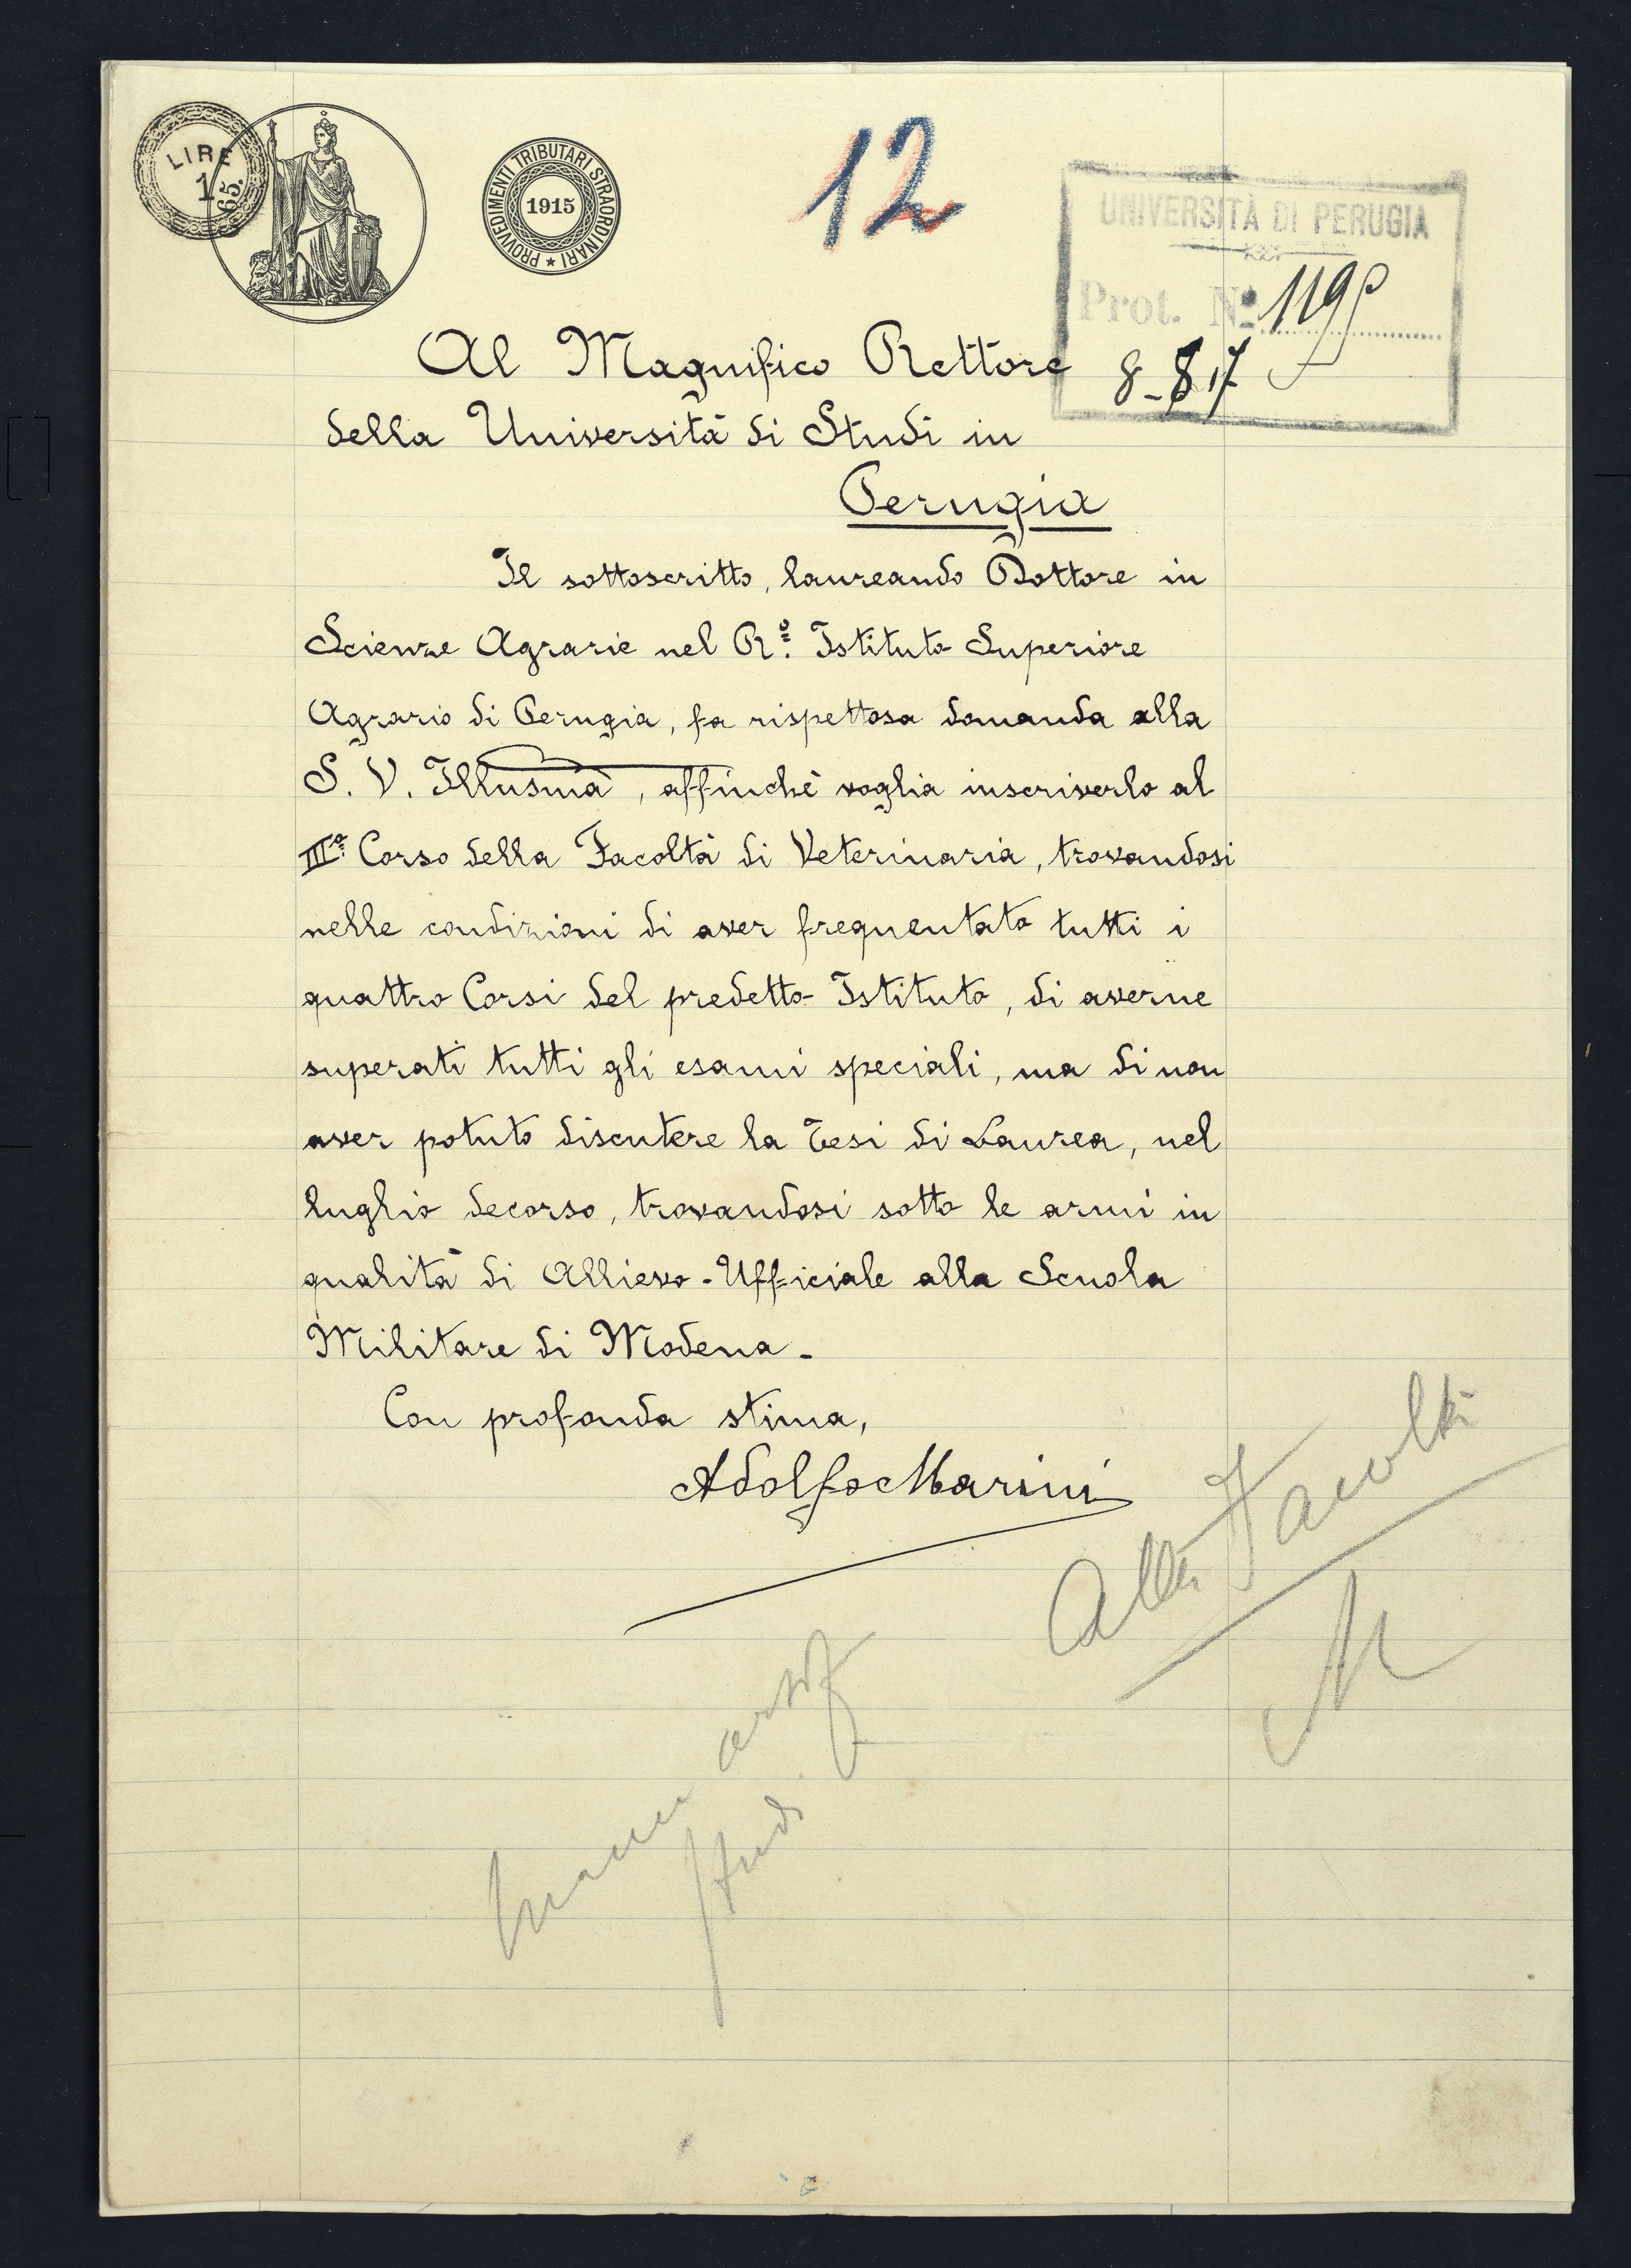 LIRE
1
65.
PROVVEDIMENTI TRIBUTARI STRAORDINARI
1915
12
UNIVERSITÀ DI PERUGIA
Prot. Nº
8-8 17
Al Magnifico Rettore
della Università di Studi in
Perugia
Il sottoscritto, laureando Dottore in
Scienze Agrarie nel R.º Istituto Superiore
Agrario di Perugia, fa rispettosa domanda alla
S. V. Illusma, affinchè voglia inscriverlo al
IIIº Corso della Facoltà di Veterinaria, trovandosi
nelle condizioni di aver frequentato tutti i
quattro Corsi del predetto Istituto, di averne
superati tutti gli esami speciali, ma di non
aver potuto discutere la Tesi di Laurea, nel
luglio decorso, trovandosi sotto le armi in
qualità di Allievo-Ufficiale alla Scuola
Militare di Modena-
Con profonda stima,
Adolfo Marini
Alla Facoltà